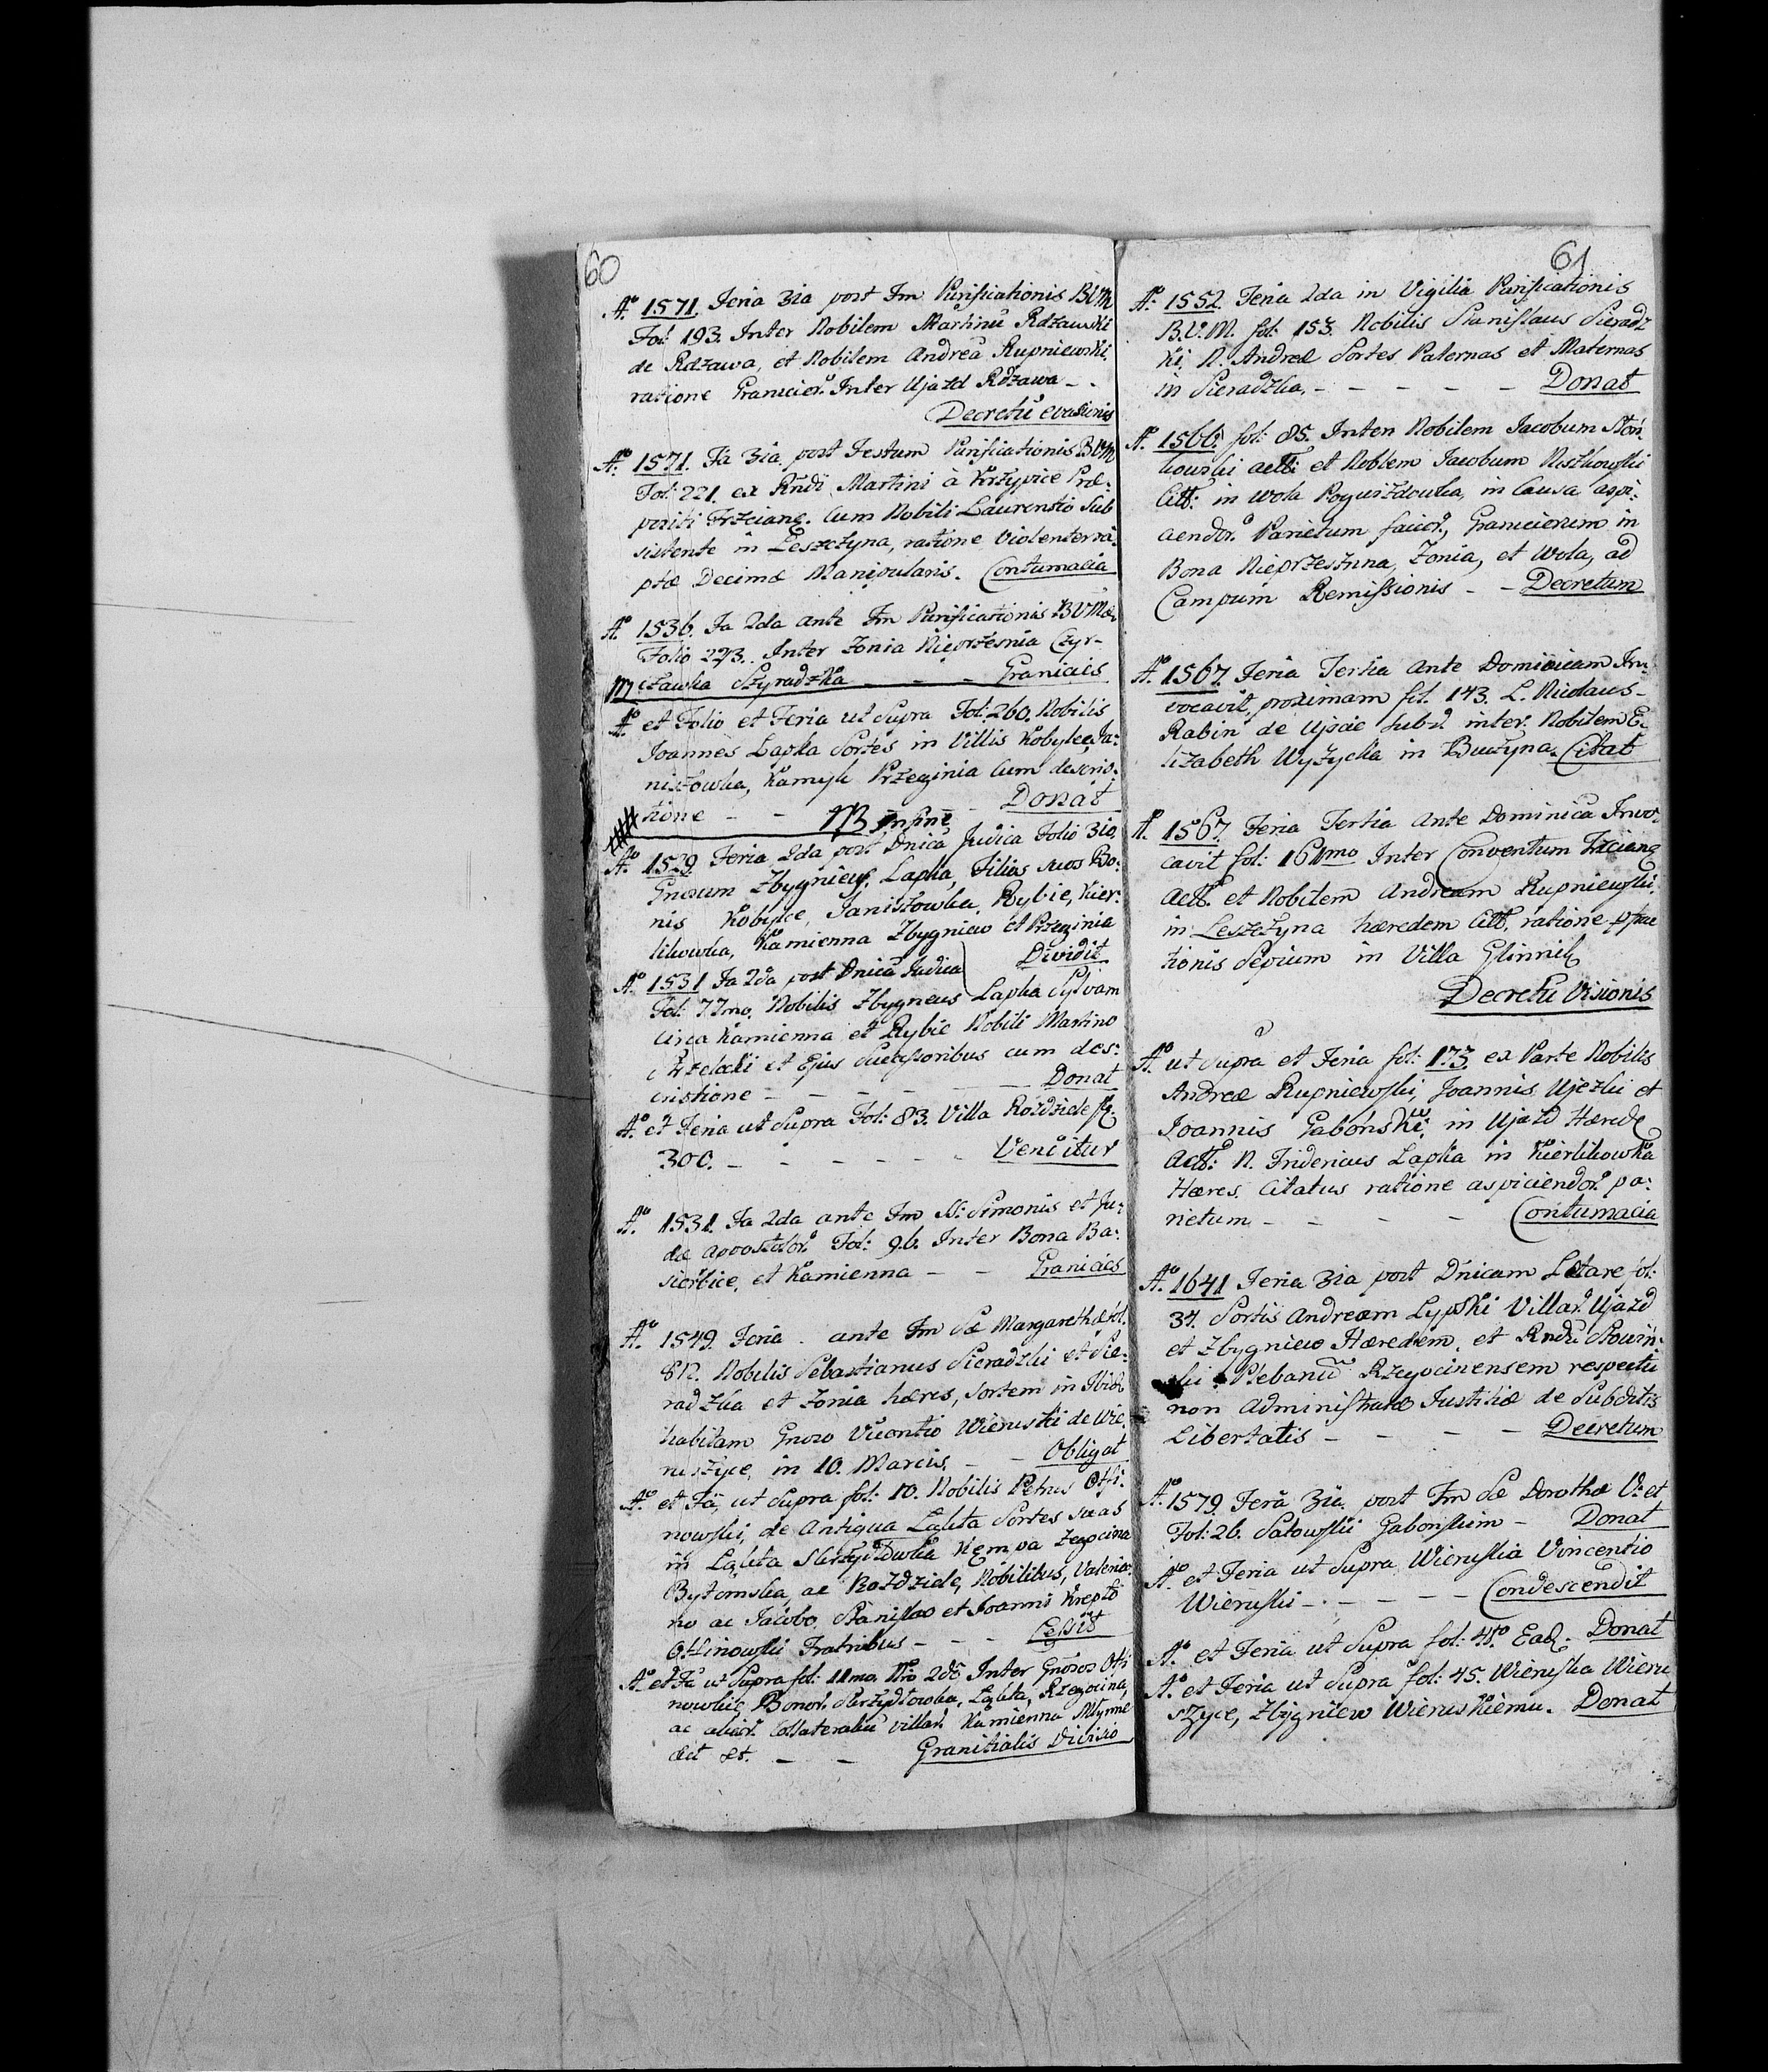 60
Aº 1571. Feria 3ia post Fm Purificationis BVM
Fol: 193. Inter Nobilem Martinũ Rdzawski
de Rdzawa, et Nobilem Andreã Rupniewski
ratione Granicier. Inter Ujazd Rdzawa - -
Decretũ evasionis
Aº 1571. Fã 3ia post Festum Purificationis BVM
Fol: 221. ex Rndi Martini à Krzyżice Præ:
positi Trzcianę. Cum Nobili Laurentio Sub
sistente in Leszczyna, ratione violenter ra:
ptæ Decimæ Manipularis. Contumacia
Aº 1536. Fa 2da ante Fm Purificationis BVMæ
Folio 273. Inter Zonia Nieprześnia Czyr-
Szyradzka - - - Granicies
Aº et Folio et Feria ut Supra Fol: 260. Nobilis
Joannes Lapka Sortes in Villis Kobylec, Ja:
niszowka, Kamyk Przeginia cum descrip:
tione - - NB infine - Donat
Aº 1529. Feria 2da post Dnicã Judica Folio 310.
Gnosum Zbygniew. Lapka, Filios suos Bo:
nis Kobylec, Janisłowka, Rybie, Kier:
likowka, Kamienna Zbygniew et Przeginia
Dividit
Aº 1531 Fa 2da post Dnicã Judica
Fol: 77mo. Nobilis Zbygneus Lapka Sylvam
circa Kamienna et Rybie Nobili Martino
et Ejus Successoribus cum des:
criptione - - - - Donat
Aº et Feria ut Supra Fol: 83. Villa Rozdziele
300. - - - - - - Venditur
Aº 1531. Fa 2da ante Fm SS: Simonis et Ju:
dæ apostolor. Fol: 96. Inter Bona Ba:
et Kamienna - - Granicies
Aº 1549. Feria . ante Fm Sæ Margarethæ fol.
Nobilis Sebastianus Sieradzki et Sie:
radzka et Zonia hæres, sortem in Ibid
habitam Gnoso Vicentio Wieruski de Wie:
ruszyce, in 10. Marcis. - - Obligat
Aº et Fã, ut Supra fol: 10. Nobilis Petrus Otfi:
nowski, de Antiqua Łąkta Sortes suas
in Łąkta Skrzydlowka Kempa Zegocina
Bytomska, ac Rozdziele, Nobilibus, Valeria:
no ac Jacobo, Stanislao et Joanni Krepto
Otfinowski Fratribus - - - Cessit
Aº et Fa ut Supra fol: 11mo. Inter Gnosos Otfi
nowskie Bonor. Skrzydlowka, Łąkta, Rzegocina,
ac alior. Collateraliũ villar. Kamienna Młynne
- - Granitialis Divisio
61
Aº 1552. Feria 2da in Vigilia Purificationis
B.V.M. fol: 153. Nobilis Stanislaus Sieradz
ki, N. Andreæ Sortes Paternas et Maternas
in Sieradzka. - - - - - Donat
Aº 1566. fol: 85. Inter Nobilem Jacobum
kowski act: et Noblem Jacobum Niszkowski
Citt: in Wola Pogwizdowka, in Causa aspi:
ciendor. Parietum facior., Granicierum in
Bona Nieprzesznna, Zonia, et Wola, ad
Campum Remissionis - - Decretum
Aº 1567. Feria Tertia ante Dominicam In:
vocavit proximam fol. 143. L. Nicolaus
Rabin de Ujscie inter. Nobilem E:
lizabeth Wyżycka in Buczyna. Citat
Aº 1567. Feria Tertia ante Dominicã Invo:
cavit fol: 161mo Inter Conventum Trzcianę
Act. et Nobilem Andream Rupniewski
in Leszczyna hæredem Citt, ratione
tionis Sepium in Villa Glinnik
Decretũ Visionis
Aº ut Supra et Feria fol: 173. ex Parte Nobilis
Andreæ Rupniewski, Joannis Ujezki et
Joannis Gaboński, in Ujazd Hæred
Act: N. Fridericus Lapka in Kierlikowka
Hæres. Citatus ratione aspiciendor. pa:
rietum - - - - Contumacia
Aº 1641 Feria 3ia post Dnicam Lætare fol:
34. Sortis Andream Lypski Villar. Ujazd
et Zbygniew Hæredem, et Rndũ Słowin:
ski Plebanũ Rzegocinensem respectu
non administratæ Justitiæ de Subditis
Libertatis - - - - Decretum
Aº 1579 Feria 3ia post Fm Sæ Dorothæ V. et
Fol: 26. Satowski Gabonskim - Donat
Aº et Feria ut Supra Wieruska Vincentio
Wieruski - . - - - Condescendit
Aº et Feria ut Supra fol: 45º. Ead. Donat
Aº et Feria ut Supra fol: 45. Wieruska Wieru
szyce, Zbygniew Wieruskiemu. Donat